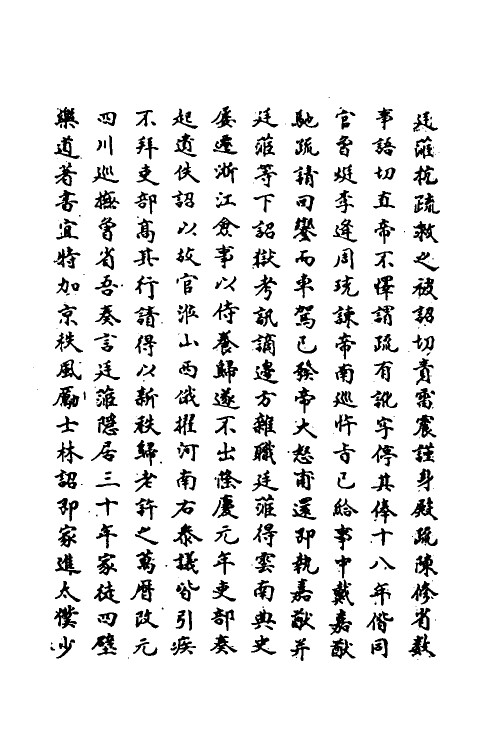 廷蒞抗疏救之被詔切責雷震謹身殿疏陳修省數
事語切直帝不懌謂疏有訛字停其俸十八年偕同
官曾烶李逢周珫諫帝南巡忤旨已給事中戴嘉猷
馳疏請回鑾而車駕已發帝大怒甫還即執嘉猷并
廷蒞等下詔獄考訊謫邊方雜職廷蒞得雲南典史
屢遷浙江僉事以侍養歸遂不出隆慶元年吏部奏
起遺佚詔以故官涖山西俄擢河南右叅議皆引疾
不拜吏部髙其行請得以新秩歸老許之萬厯改元
四川巡撫曾省吾奏言廷蒞隱居三十年家徒四壁
樂道著書宜特加京秩風勵士林詔即家進太僕少